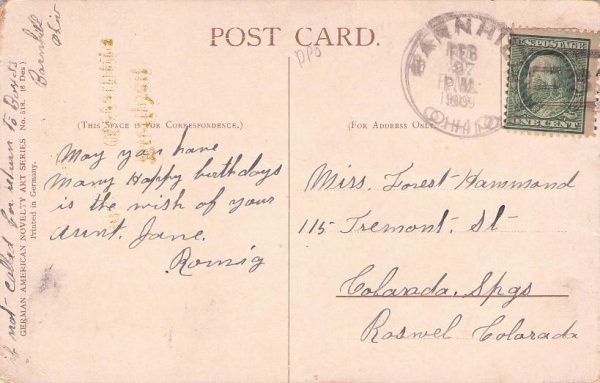 POST CARD.
PPO
BARNHI
FEB
P.M.
1909
OHIO
U.S. POSTAGE
ONE CENT
(THIS SPACE IS FOR CORRESPONDENCE.)
(FOR ADDRESS ONLY
May you have
Many Happy birthdays
is the wish of your
Aunt. Jane.
Romig
Miss. Forest Hammond
115 Tremont. St
Colarada. Spgs
Roswel Colarada
GERMAN AMERICAN NOVELTY ART SERIES No. 518. (6 Des)
Printed in Germany.
if not called for return to Boxds
Barnhill
Ohio